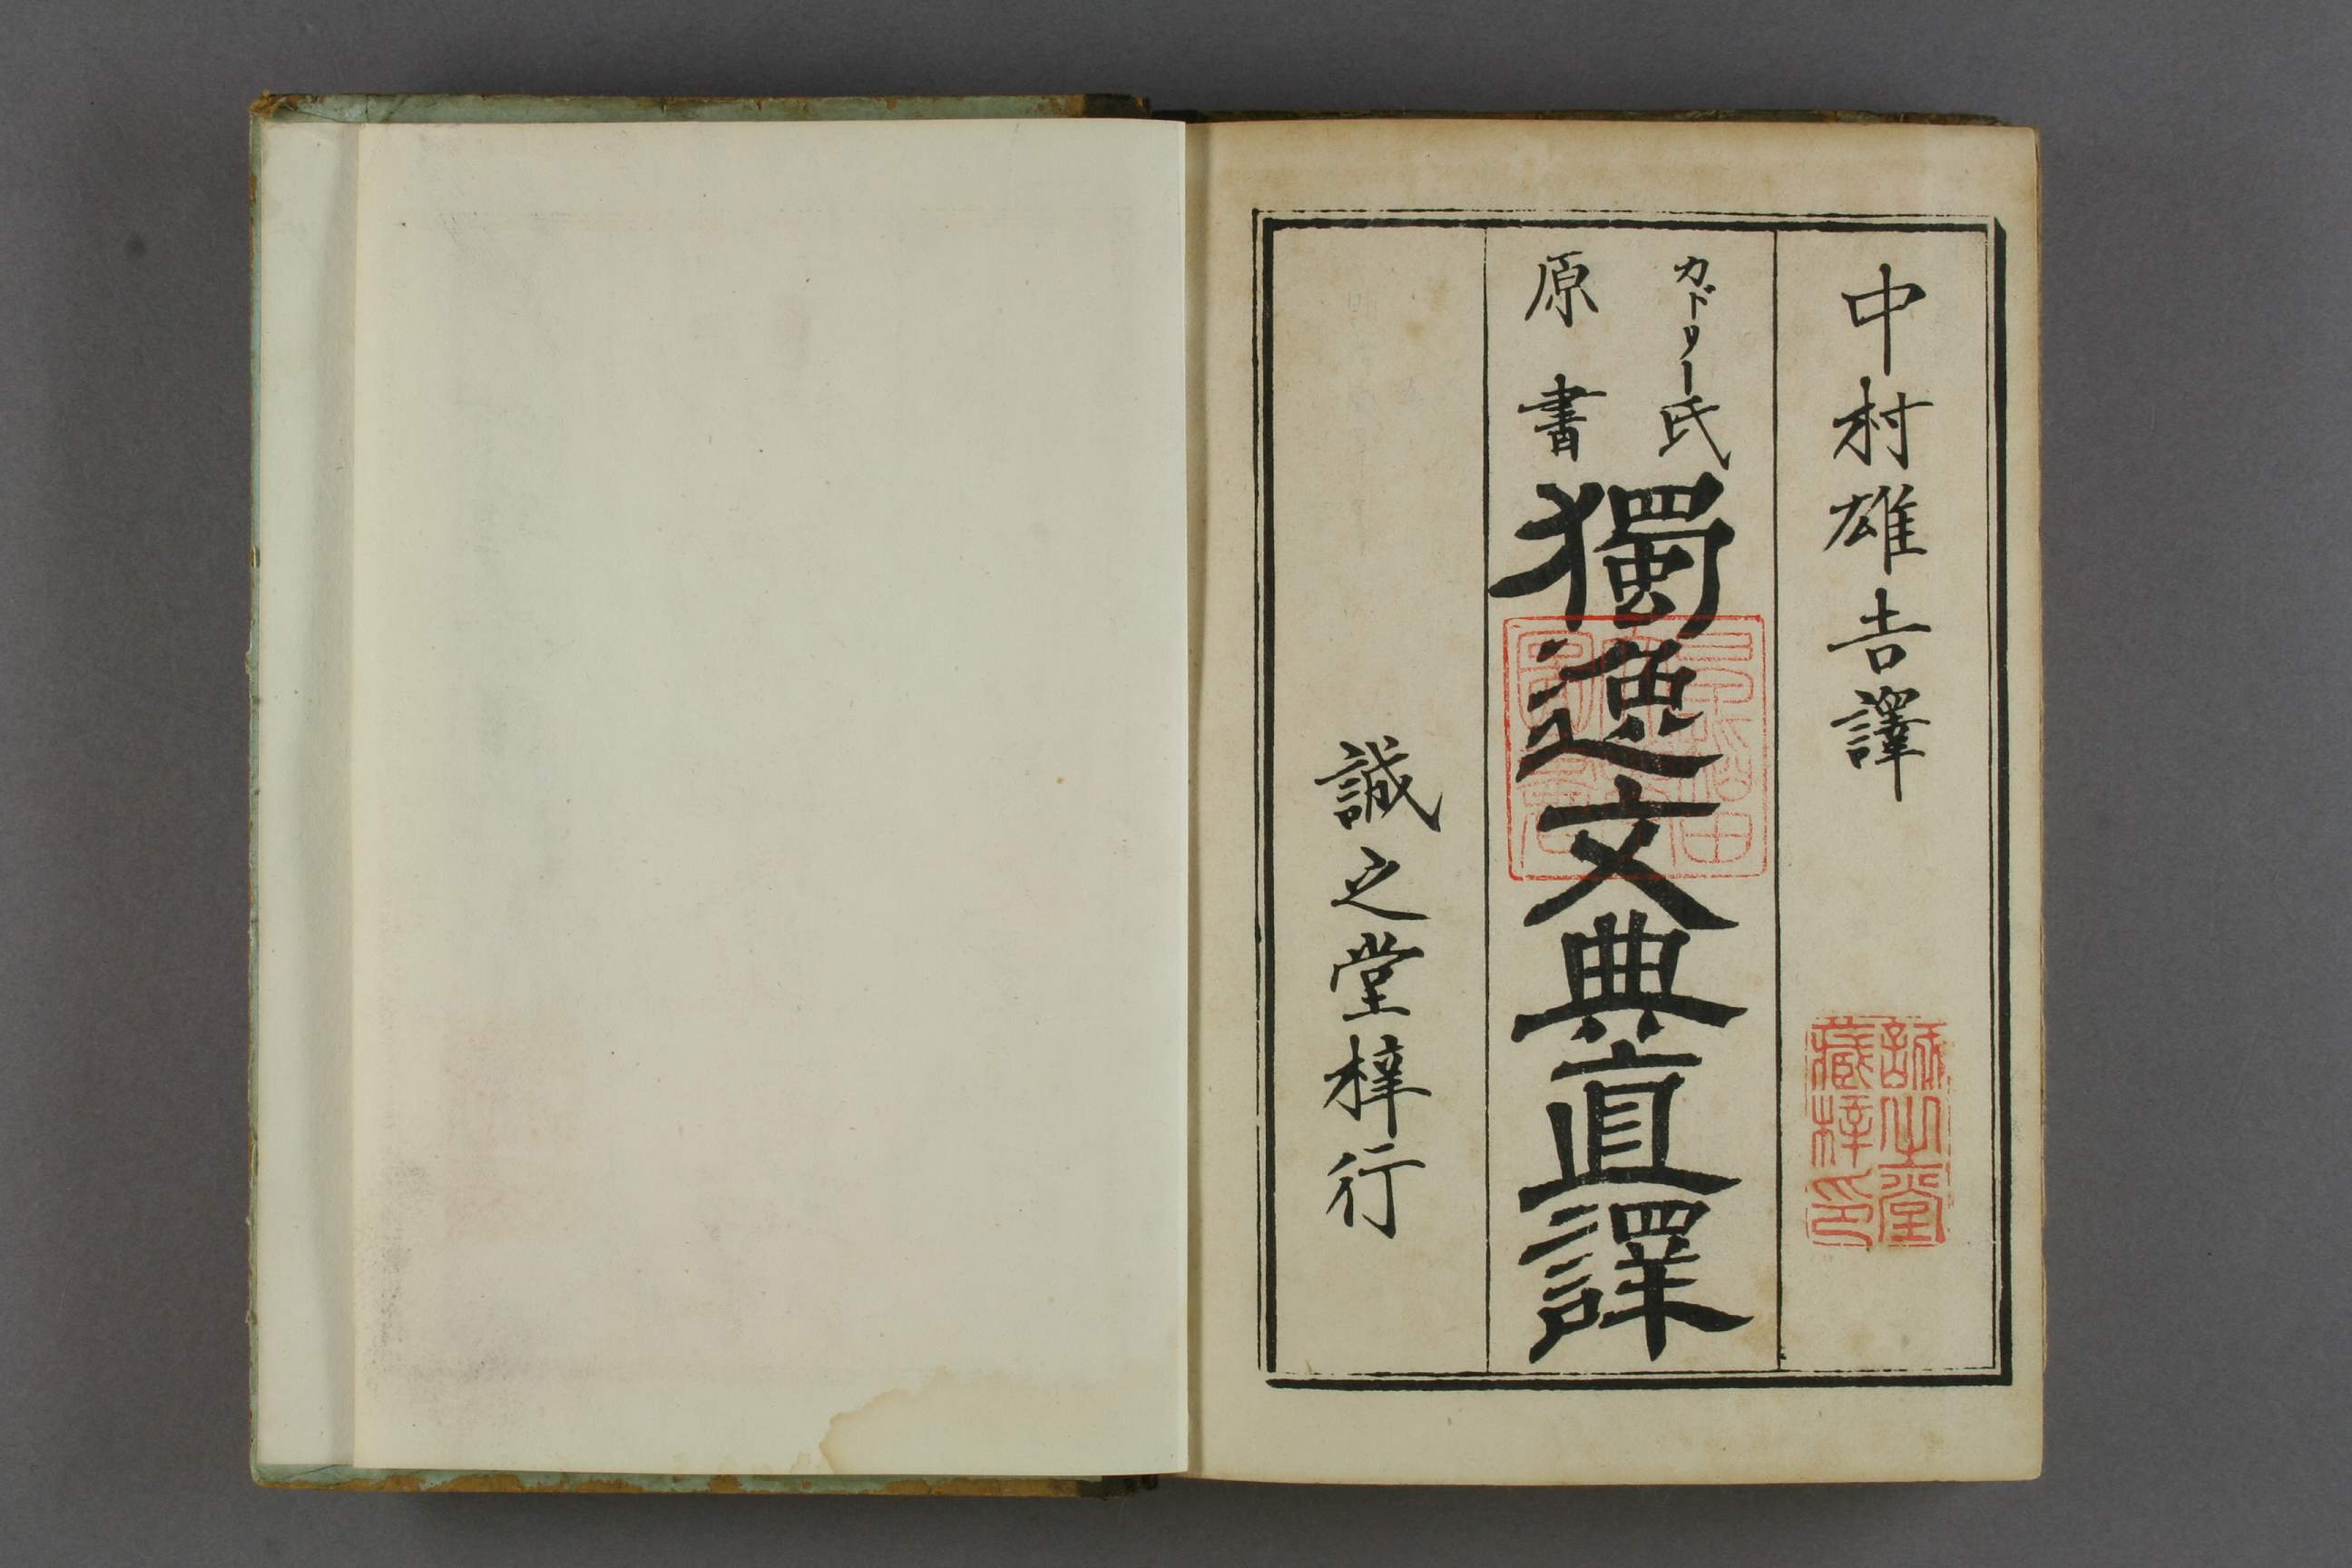 中村雄吉譯
誠之堂
藏梓印
カドリー氏
原書
獨逸文典直譯
誠之堂梓行